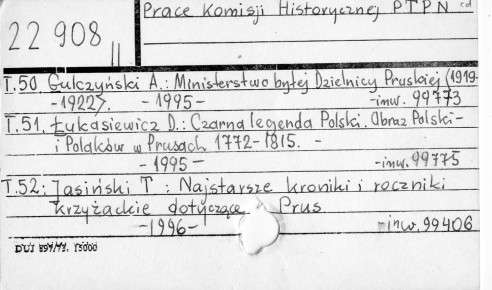 Prace Komisji Historycznej PTPN cd
22 908 II
T.50 Gulczyński A.: Ministerstwo byłej Dzielnicy Pruskiej (1919-
-1922). -1995- -inw. 99773
T.51. Łukasiewicz D.: Czarna legenda Polski. Obraz Polski-
i Polaków w Prusach 1772-1815. -
-1995- -inw. 99775
T.52: Jasiński T.: Najstarsze kroniki i roczniki
krzyżackie dotyczące Prus
-1996- -inw. 99406